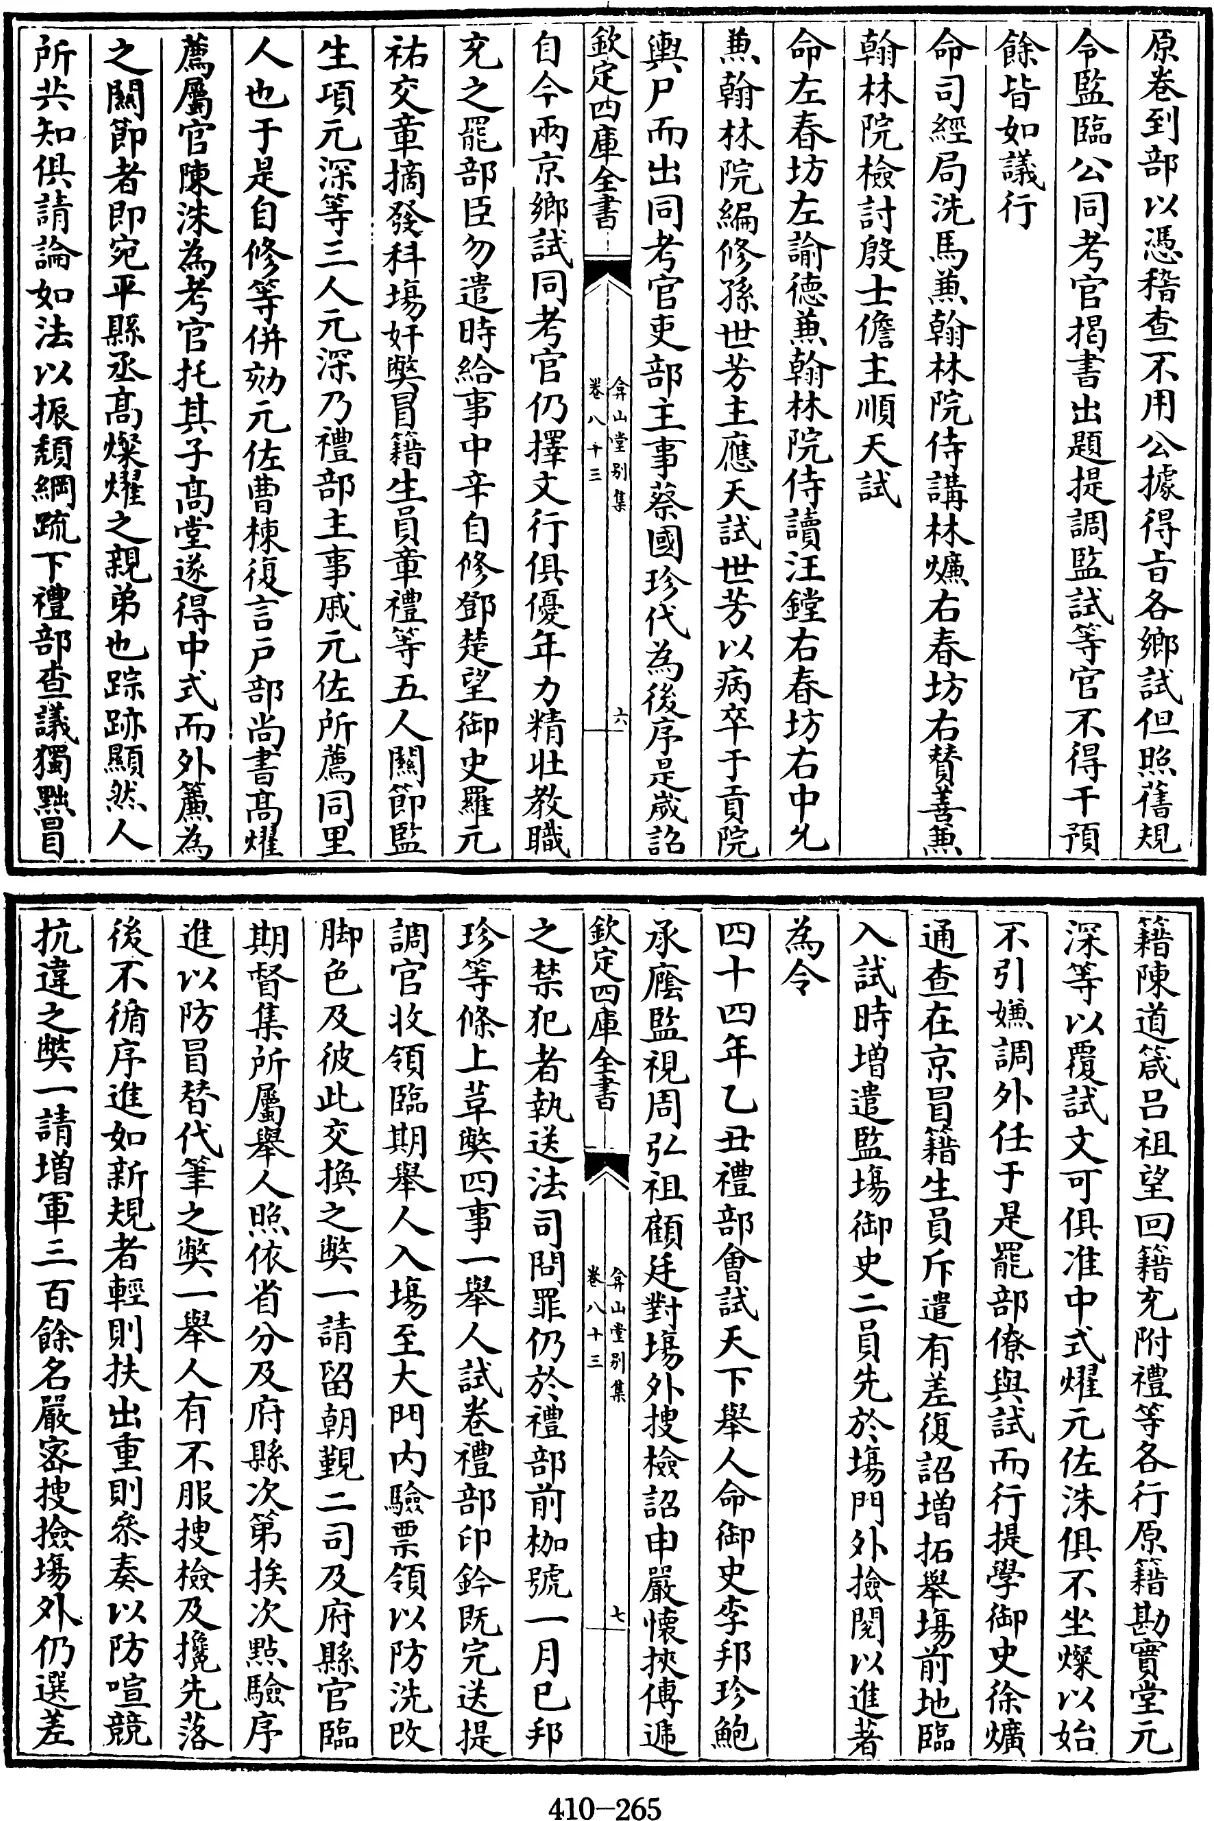 原卷到部以憑稽查不用公據得㫖各鄉試但照舊規
令監臨公同考官揭書出題提調監試等官不得干預
餘皆如議行
命司經局洗馬兼翰林院侍講林爌右春坊右賛善兼
翰林院檢討殷士儋主順天試
命左春坊左諭德兼翰林院侍讀汪鏜右春坊右中允
兼翰林院編修孫世芳主應天試世芳以病卒于貢院
輿尸而出同考官吏部主事蔡國珍代為後序是歲詔
欽定四庫全書
弇山堂别集
卷八十三
六
自今兩京鄉試同考官仍擇文行俱優年力精壯教職
充之罷部臣勿遣時給事中辛自修鄧楚望御史羅元
祐交章摘發科場奸弊冒籍生員章禮等五人關節監
生項元深等三人元深乃禮部主事戚元佐所薦同里
人也于是自修等併劾元佐曹棟復言戸部尚書髙燿
薦屬官陳洙為考官托其子髙堂遂得中式而外簾為
之關節者即宛平縣丞髙燦燿之親弟也踪跡顯然人
所共知俱請論如法以振頽綱疏下禮部查議獨黜冒
籍陳道箴吕祖望回籍充附禮等各行原籍勘實堂元
深等以覆試文可俱准中式燿元佐洙俱不坐燦以始
不引嫌調外任于是罷部僚與試而行提學御史徐爌
通查在京冒籍生員斥遣有差復詔增拓舉場前地臨
入試時增遣監場御史二員先於場門外撿閱以進著
為令
四十四年乙丑禮部會試天下舉人命御史李邦珍鮑
承廕監視周弘祖顧廷對場外搜檢詔申嚴懷挾傳遞
欽定四庫全書
弇山堂别集
卷八十三
七
之禁犯者執送法司問罪仍於禮部前枷號一月已邦
珍等條上革弊四事一舉人試卷禮部印鈐既完送提
調官收領臨期舉人入場至大門内驗票領以防洗改
脚色及彼此交換之弊一請留朝覲二司及府縣官臨
期督集所屬舉人照依省分及府縣次第挨次點驗序
進以防冒替代筆之弊一舉人有不服搜檢及攙先落
後不循序進如新規者輕則扶出重則叅奏以防喧競
抗違之弊一請增軍三百餘名嚴密搜撿場外仍選差
410-265